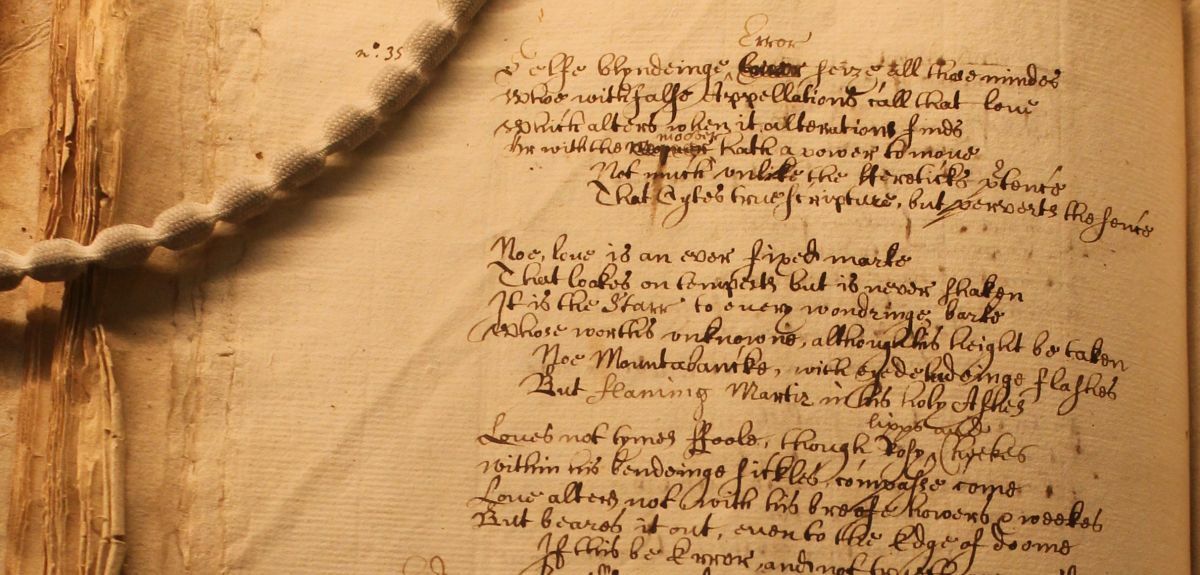 Error
n⁰. 35
Selfe blyndeinge seize all those mindes
Whoe with false Appellations call that love
Which alters when it alterations finds
moover
Or with the hath a power to move
Not much unlike the Hereticks ptence
That Cytes true scripture, but perverts the sence
Noe, love is an ever fixed marke
That lookes on tempests but is never shaken
It is the Starr to every wondringe barke
Whose worths unknowne, although his height be taken
Noe Mountabancke, with eyedeludeinge flashes
But flaming Martir in his holy Ashes
lipps and
Loves not tymes ffoole, though Rosy Cheekes
within his bendeinge sickles compasse come
Love alters not with his breefe howers & weekes
But beares it out, even to the Edge of doome
If this be Error, and not